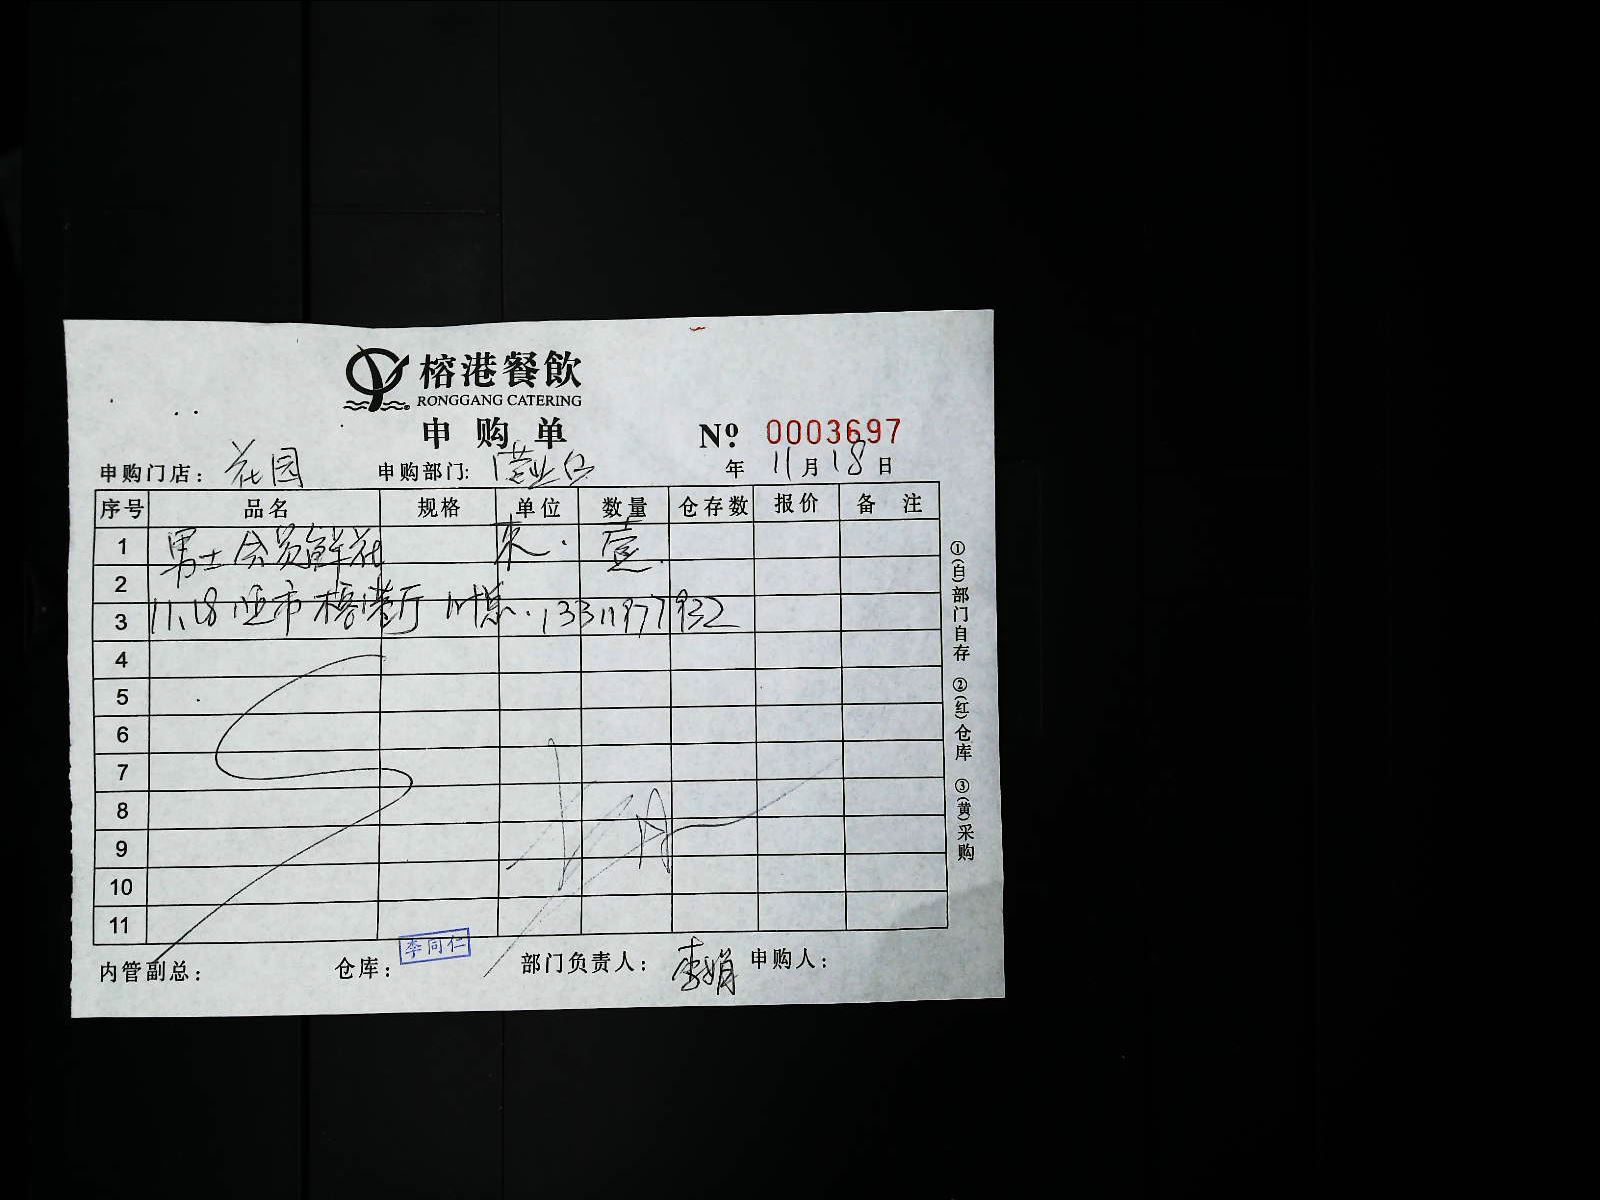 榕港餐飲
RONGGANG CATERING
申购单
№ 0003697
申购门店：花园 申购部门: 营业 年 11月18日
序号 品名 规格 单位 数量 仓存数 报价 备 注
1 男士会员鲜花 束. 壹.
2
3 11.18 夜市榕港厅 叶总. 13311977932
4
5
6
7
8
9
10
11
内管副总： 仓库： 李同仁 部门负责人： 李娟 申购人：
①(白)部门自存 ②(红)仓库 ③(黄)采购